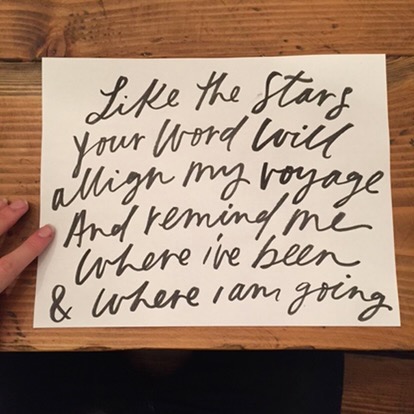 Like the Stars
your Word Will
allign my voyage
And remind me
where ive been
& where i am going